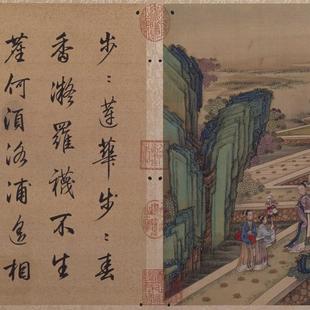 步〻蓮華步〻春
香凝羅襪不生
塵何須洛浦遙相